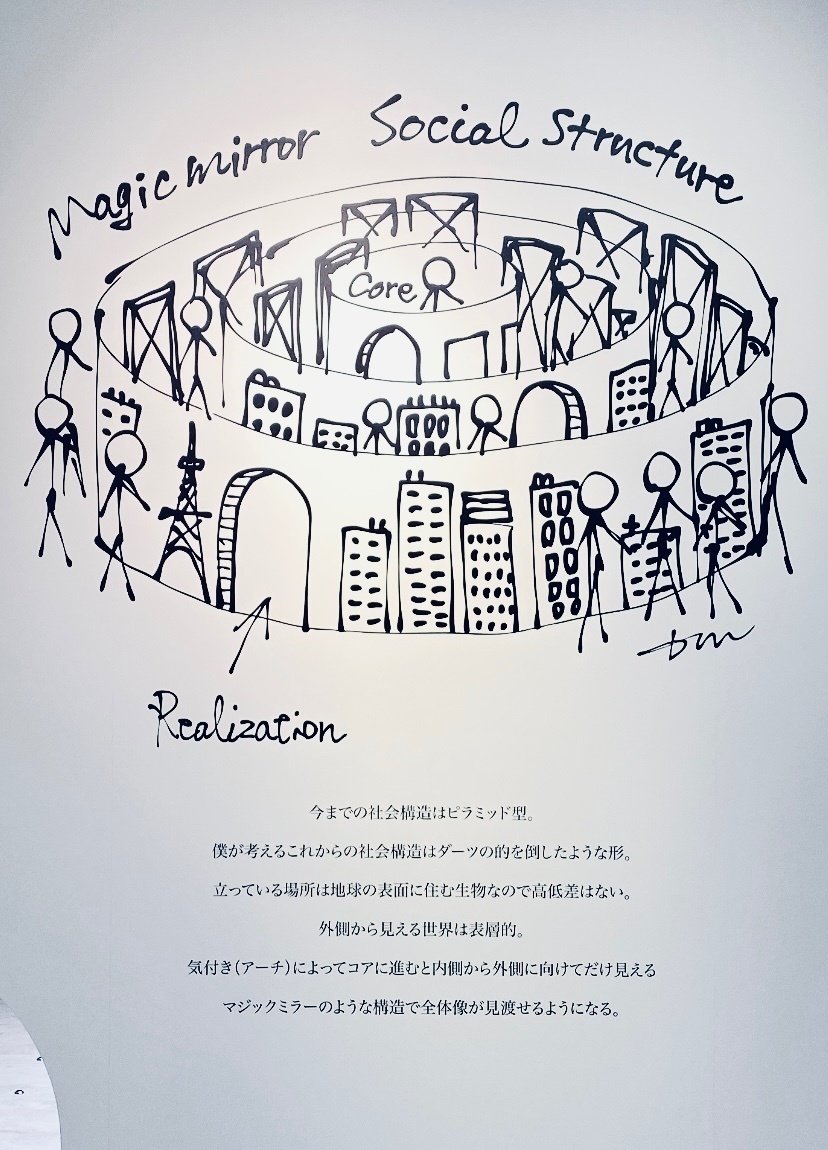 Magic mirror Social Structure
Core
Realization
今までの社会構造はピラミッド型。
僕が考えるこれからの社会構造はダーツの的を倒したような形。
立っている場所は地球の表面に住む生物なので高低差はない。
外側から見える世界は表層的。
気付き(アーチ)によってコアに進むと内側から外側に向けてだけ見える
マジックミラーのような構造で全体像が見渡せるようになる。